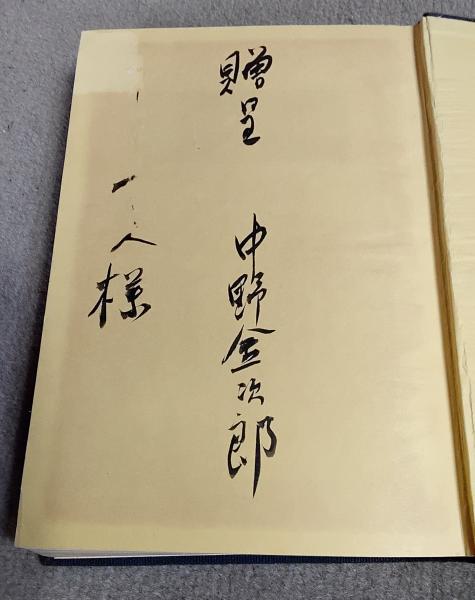 贈呈 中野金次郎
人様